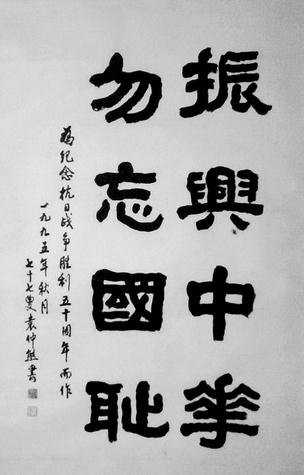 振興中華
勿忘國耻
為纪念抗日战争胜利五十周年而作
一九九五年秋月
七十七叟袁仲熊書